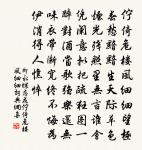 佇倚危樓風細細望極
春愁黯黯生天際草色
煙光殘照裏無言誰會
憑闌意擬把疏狂圖一
醉對酒當歌強樂還無
味衣帶漸寬終不悔為
伊消得人憔悴
柳永蝶戀花佇倚危樓
風細細詞典網集